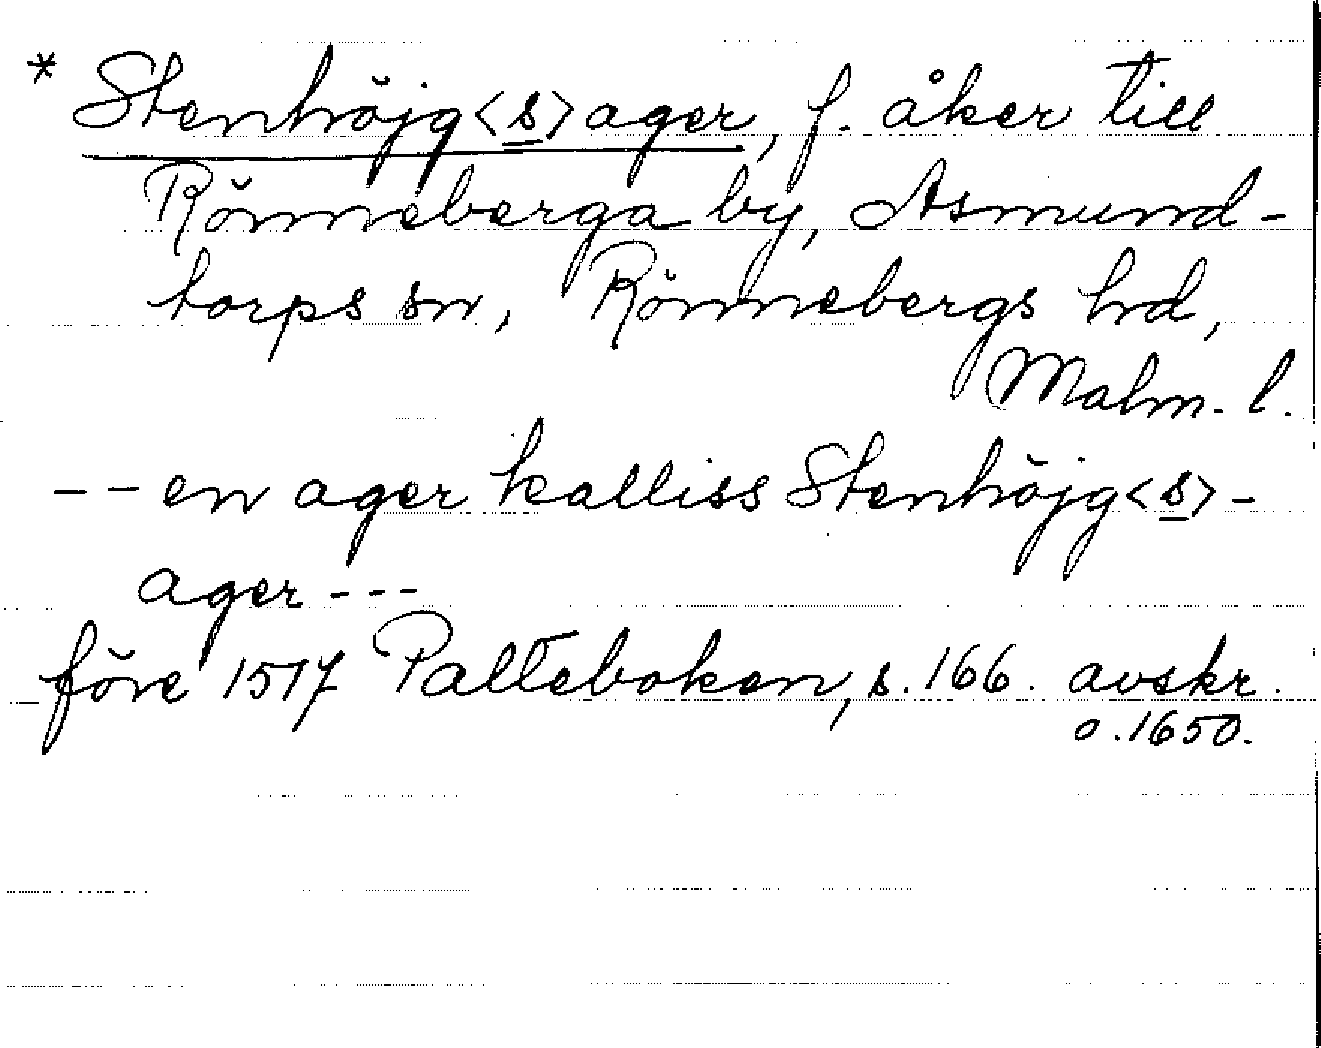 * Stenhöjg<s>ager, f. åker till
Rönneberga by, Asmund-
torps sn, Rönnebergs hd,
Malm. l.
-- en ager kalliss Stenhöjg<s>-
ager ---
före 1517 Palteboken, s. 166. avskr.
o. 1650.